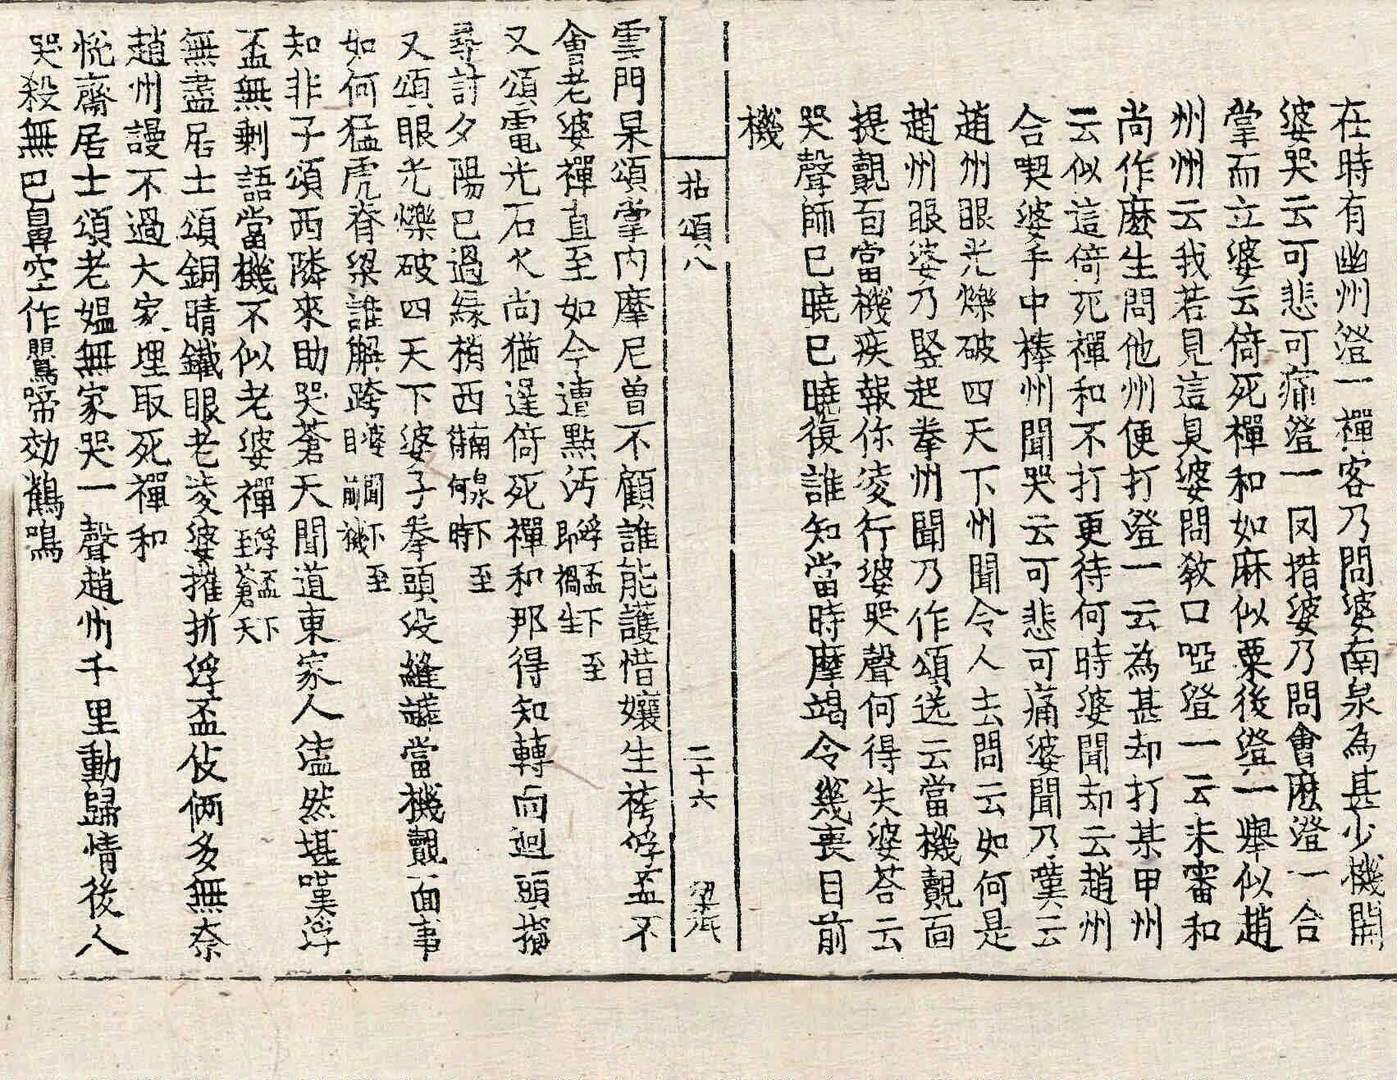 在時有幽州澄一禪客乃問婆南泉為甚少機関
婆哭云可悲可痛澄一罔措婆乃問會麽澄一合
掌而立婆云倚死禪和如麻似粟後澄一舉似趙
州州云我若見這臭婆問敎口啞澄一云未審和
尚作麽生問他州便打澄一云為甚却打某甲州
云似這倚死禪和不打更待何時婆聞却云趙州
合喫婆手中棒州聞哭云可悲可痛婆聞乃嘆云
趙州眼光爍破四天下州聞令人去問云如何是
趙州眼婆乃竪起拳州聞乃作頌送云當機覿面
提覿面當機疾報你凌行婆哭聲何得失婆荅云
哭聲師已曉已曉復誰知當時摩竭令幾喪目前
機
拈頌八 二十六
雲門杲頌掌內摩尼曾不顧誰能護惜孃生袴浮盃不
會老婆禪直至如今遭點汚浮盃下至即禍生
又頌電光石火尚猶遅倚死禪和那得知轉面迴頭擬
尋討夕陽已過緑梢西南泉下至待何時
又頌眼光爍破四天下婆子拳頭没縫罅當機覿面事
如何猛虎脊梁誰解跨婆聞下至目前機
知非子頌西隣來助哭蒼天聞道東家人儘然堪嘆浮
盃無剩語當機不似老婆禪浮盃下至蒼天
無盡居士頌銅睛鐵眼老凌婆摧折浮盃伎倆多無奈
趙州謾不過大家埋取死禪和
恱齋居士頌老媼無家哭一聲趙州千里動歸情後人
哭殺無巴鼻空作鸎啼効鶴鳴